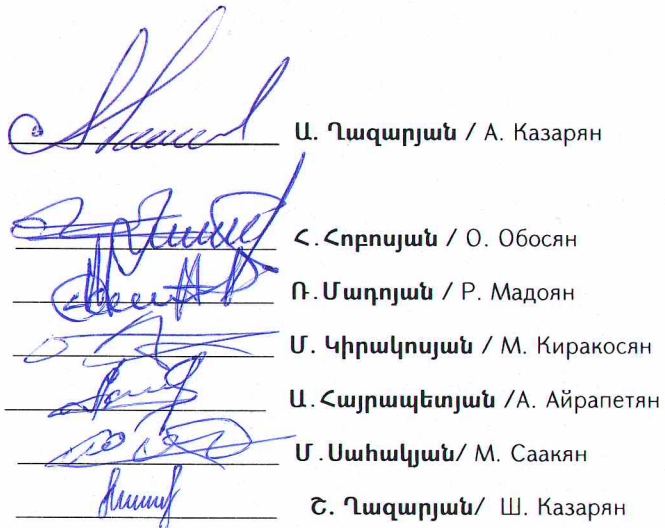 Ա. Ղազարյան / А. Казарян
Հ. Հոբոսյան / О. Обосян
Ռ. Մադոյան / Р. Мадоян
Մ. Կիրակոսյան / М. Киракосян
Ա. Հայրապետյան /А. Айрапетян
Մ. Սահակյան/ М. Саакян
Շ. Ղազարյան/ Ш. Казарян